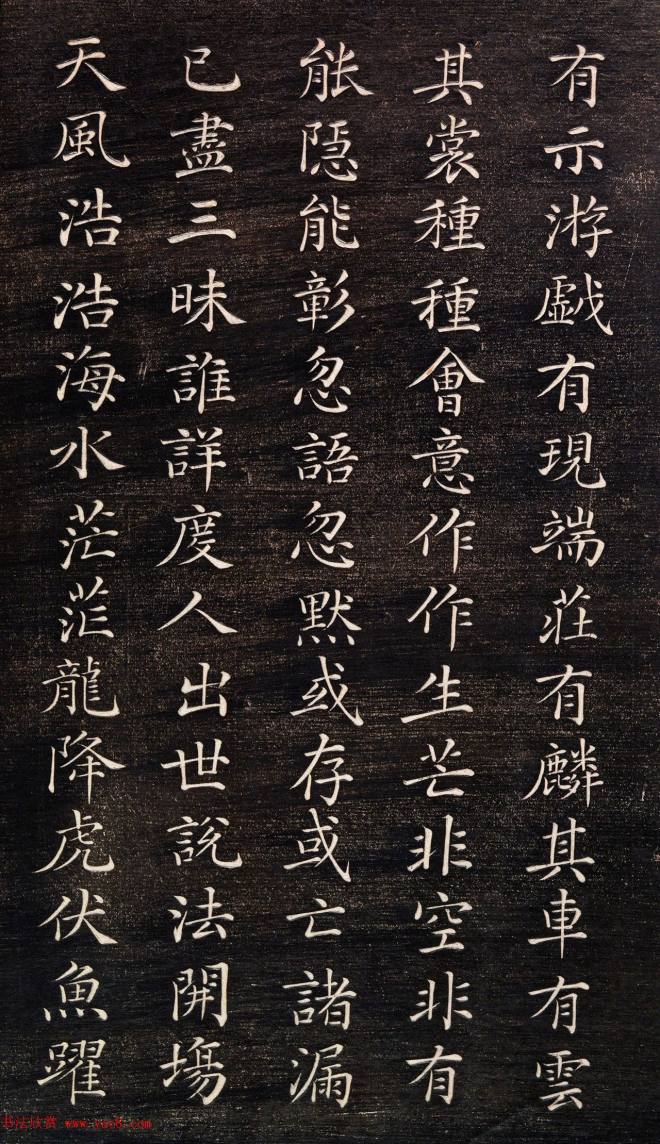 有示游戲有現端莊有麟其車有雲
其裳種種會意作作生芒非空非有
能隱能彰忽語忽默或存或亡諸漏
已盡三昧誰詳度人出世説法開塲
天風浩浩海水茫茫龍降虎伏魚躍
书法欣赏 www.yac8.com